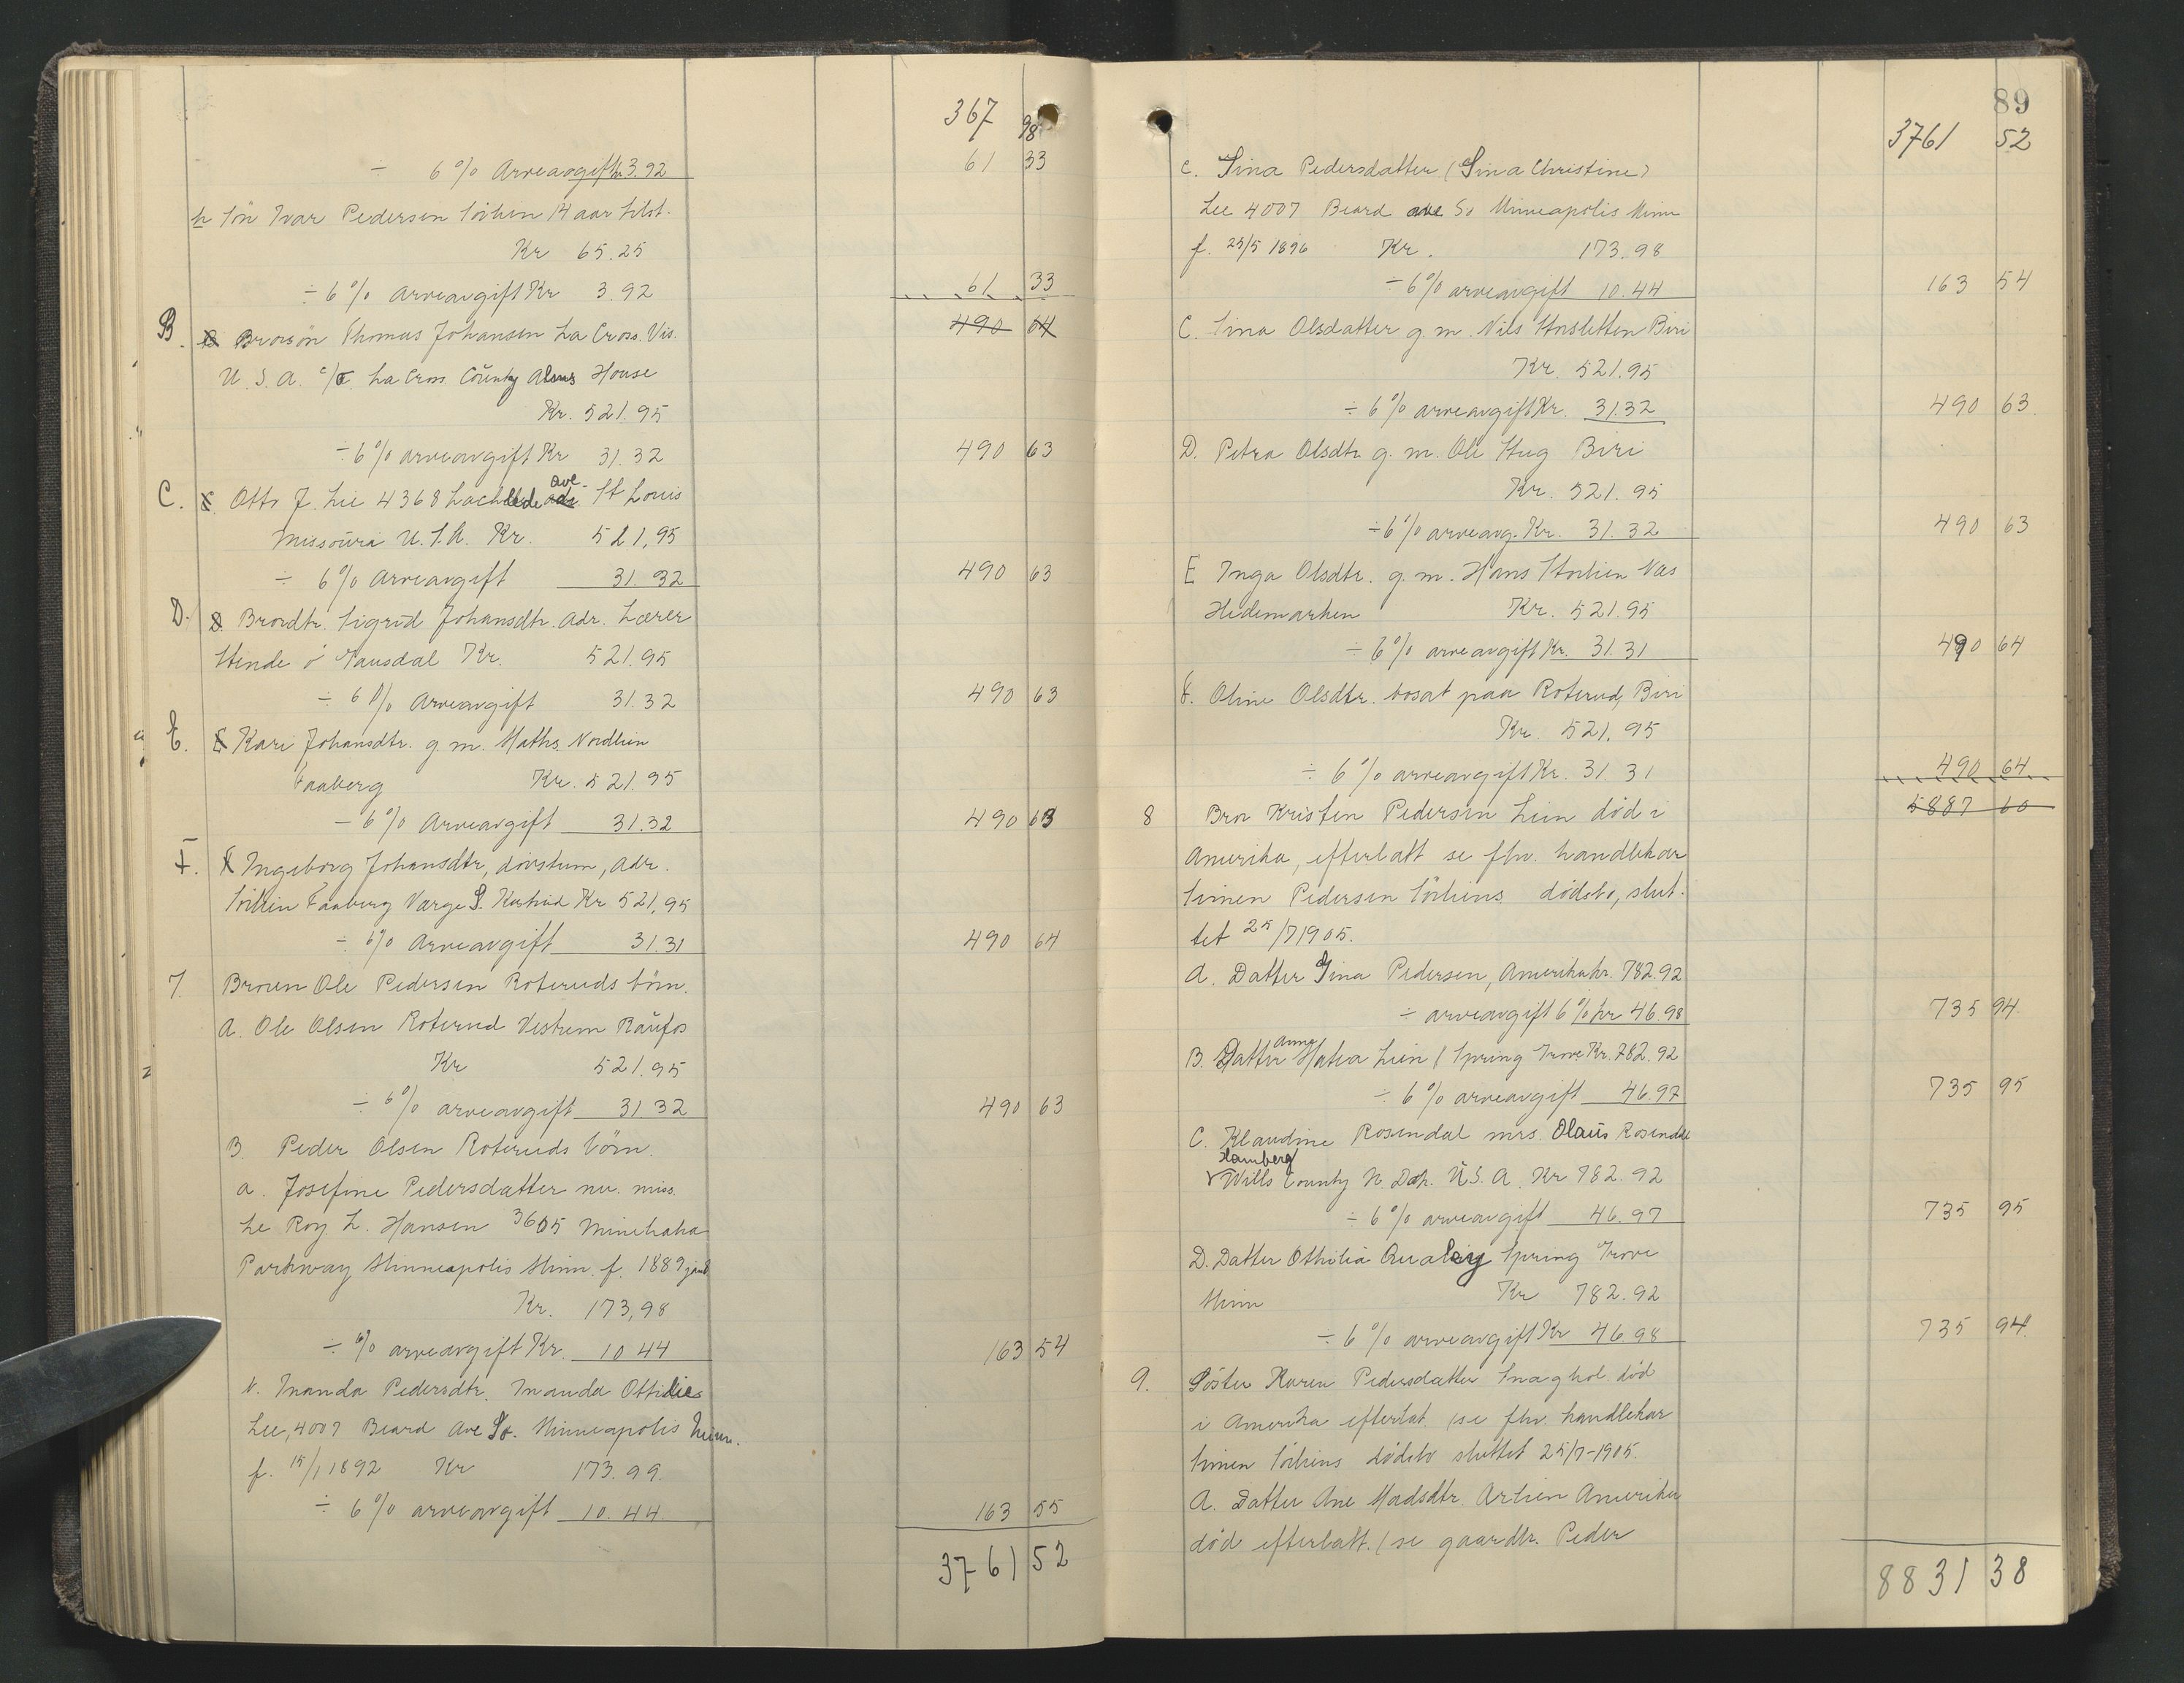 367 98
÷ 6% Arveavgift kr 3.92 61 33
h Sön Ivar Pedersen Sörlien 14 aar tilst.
Kr 65.25
÷ 6% arveavgift Kr 3.92 61 33
B. Brorsön Thomas Johansen La Cross. Vis. 490 64
U.S.A. c/o. La Cross. County Alms House
Kr. 521.95
÷ 6% arveavgift Kr 31.32 490 63
C. Otto J. Lie 4368 Lacklede ave. St Louis
Missouri U.S.A. Kr. 521,95
÷ 6% Arveavgift 31.32 490 63
D. Brordtr. Sigrid Johansdtr. adr. Lærer
Stende i Gausdal Kr. 521.95
÷ 6% Arveavgift 31.32 490 63
E. Kari Johansdtr. g. m. Maths. Nordlien
Faaberg Kr. 521.95
÷ 6% Arveavgift 31.32 490 63
F. Ingeborg Johansdtr, dövstum, adr.
Sörlien Faaberg Verge S. Kutrud Kr 521,95
÷ 6% Arveavgift 31.31 490 64
7. Broren Ole Pedersen Roteruds börn.
A. Ole Olsen Roterud Vestrem Raufos
Kr 521.95
÷ 6% arveavgift 31 32 490 63
B. Peder Olsen Roteruds börn.
a. Josefine Pedersdatter nu. miss.
Le Roy L. Hansen 3605 Minehaha
Parkway Minneapolis Minn. f. 1889
Kr. 173,98
÷ 6% arveavgift Kr. 10 44 163 54
b. Inanda Pedersdtr. Inanda Ottidie
Lee, 4007 Beard Ave So. Minneapolis Minn.
f. 15/1 1892 Kr 173.99.
÷ 6% arveavgift 10.44. 163 55
3761 52
89
3761 52
c. Sina Pedersdatter (Sina Christine)
Lee 4007 Beard ave So Minneapolis Minn
f. 25/5 1896 Kr. 173.98
÷ 6% arveavgift 10.44 163 54
C. Sina Olsdatter g. m. Nils Stensletten Biri
Kr. 521.95
÷ 6% arveavgift Kr. 31.32 490 63
D. Petra Olsdtr g. m. Ole Hug Biri
Kr. 521.95
÷ 6% arveavg. Kr. 31.32 490 63
E Inga Olsdtr. g. m. Hans Storlien Næs
Hedemarken Kr. 521.95
÷ 6% arveavgift Kr. 31.31 490 64
F. Oline Olsdtr. bosat paa Roterud, Biri
Kr. 521.95
÷ 6% arveavgift Kr. 31 31 490 64
5887 60
8 Bror Kristen Pedersen Lien död i
Amerika, efterlatt se fhv. handlekar
Simen Pedersen Sörliens dödsbo, slut-
tet 25/7 1905.
A. Datter Gina Pedersen, Amerika kr. 782.92
÷ arveavgift 6% kr 46.98 735 94.
B. Datter Anna Matea Lien / Spring Grove Kr. 782.92
÷ 6% arveavgift 46.97 735 95
C. Klaudine Rosendal mrs. Olaus Rosendal
Hamberg
Wills County N. Dak. U.S.A. Kr 782.92
÷ 6% arveavgift 46.97 735 95
D. Datter Othilia Qualey Spring Grove
Minn Kr 782.92
÷ 6% arveavgift Kr 46 98 735 94.
9. Söster Karen Pedersdatter Snaghol död
i Amerika efterlat (se fhv. handlekar
Simen Sörliens dödsbo sluttet 25/7-1905.
A. Datter Ane Madsdtr. Arlien Amerika
död efterlatt. (se gaardbr. Peder
8831 38